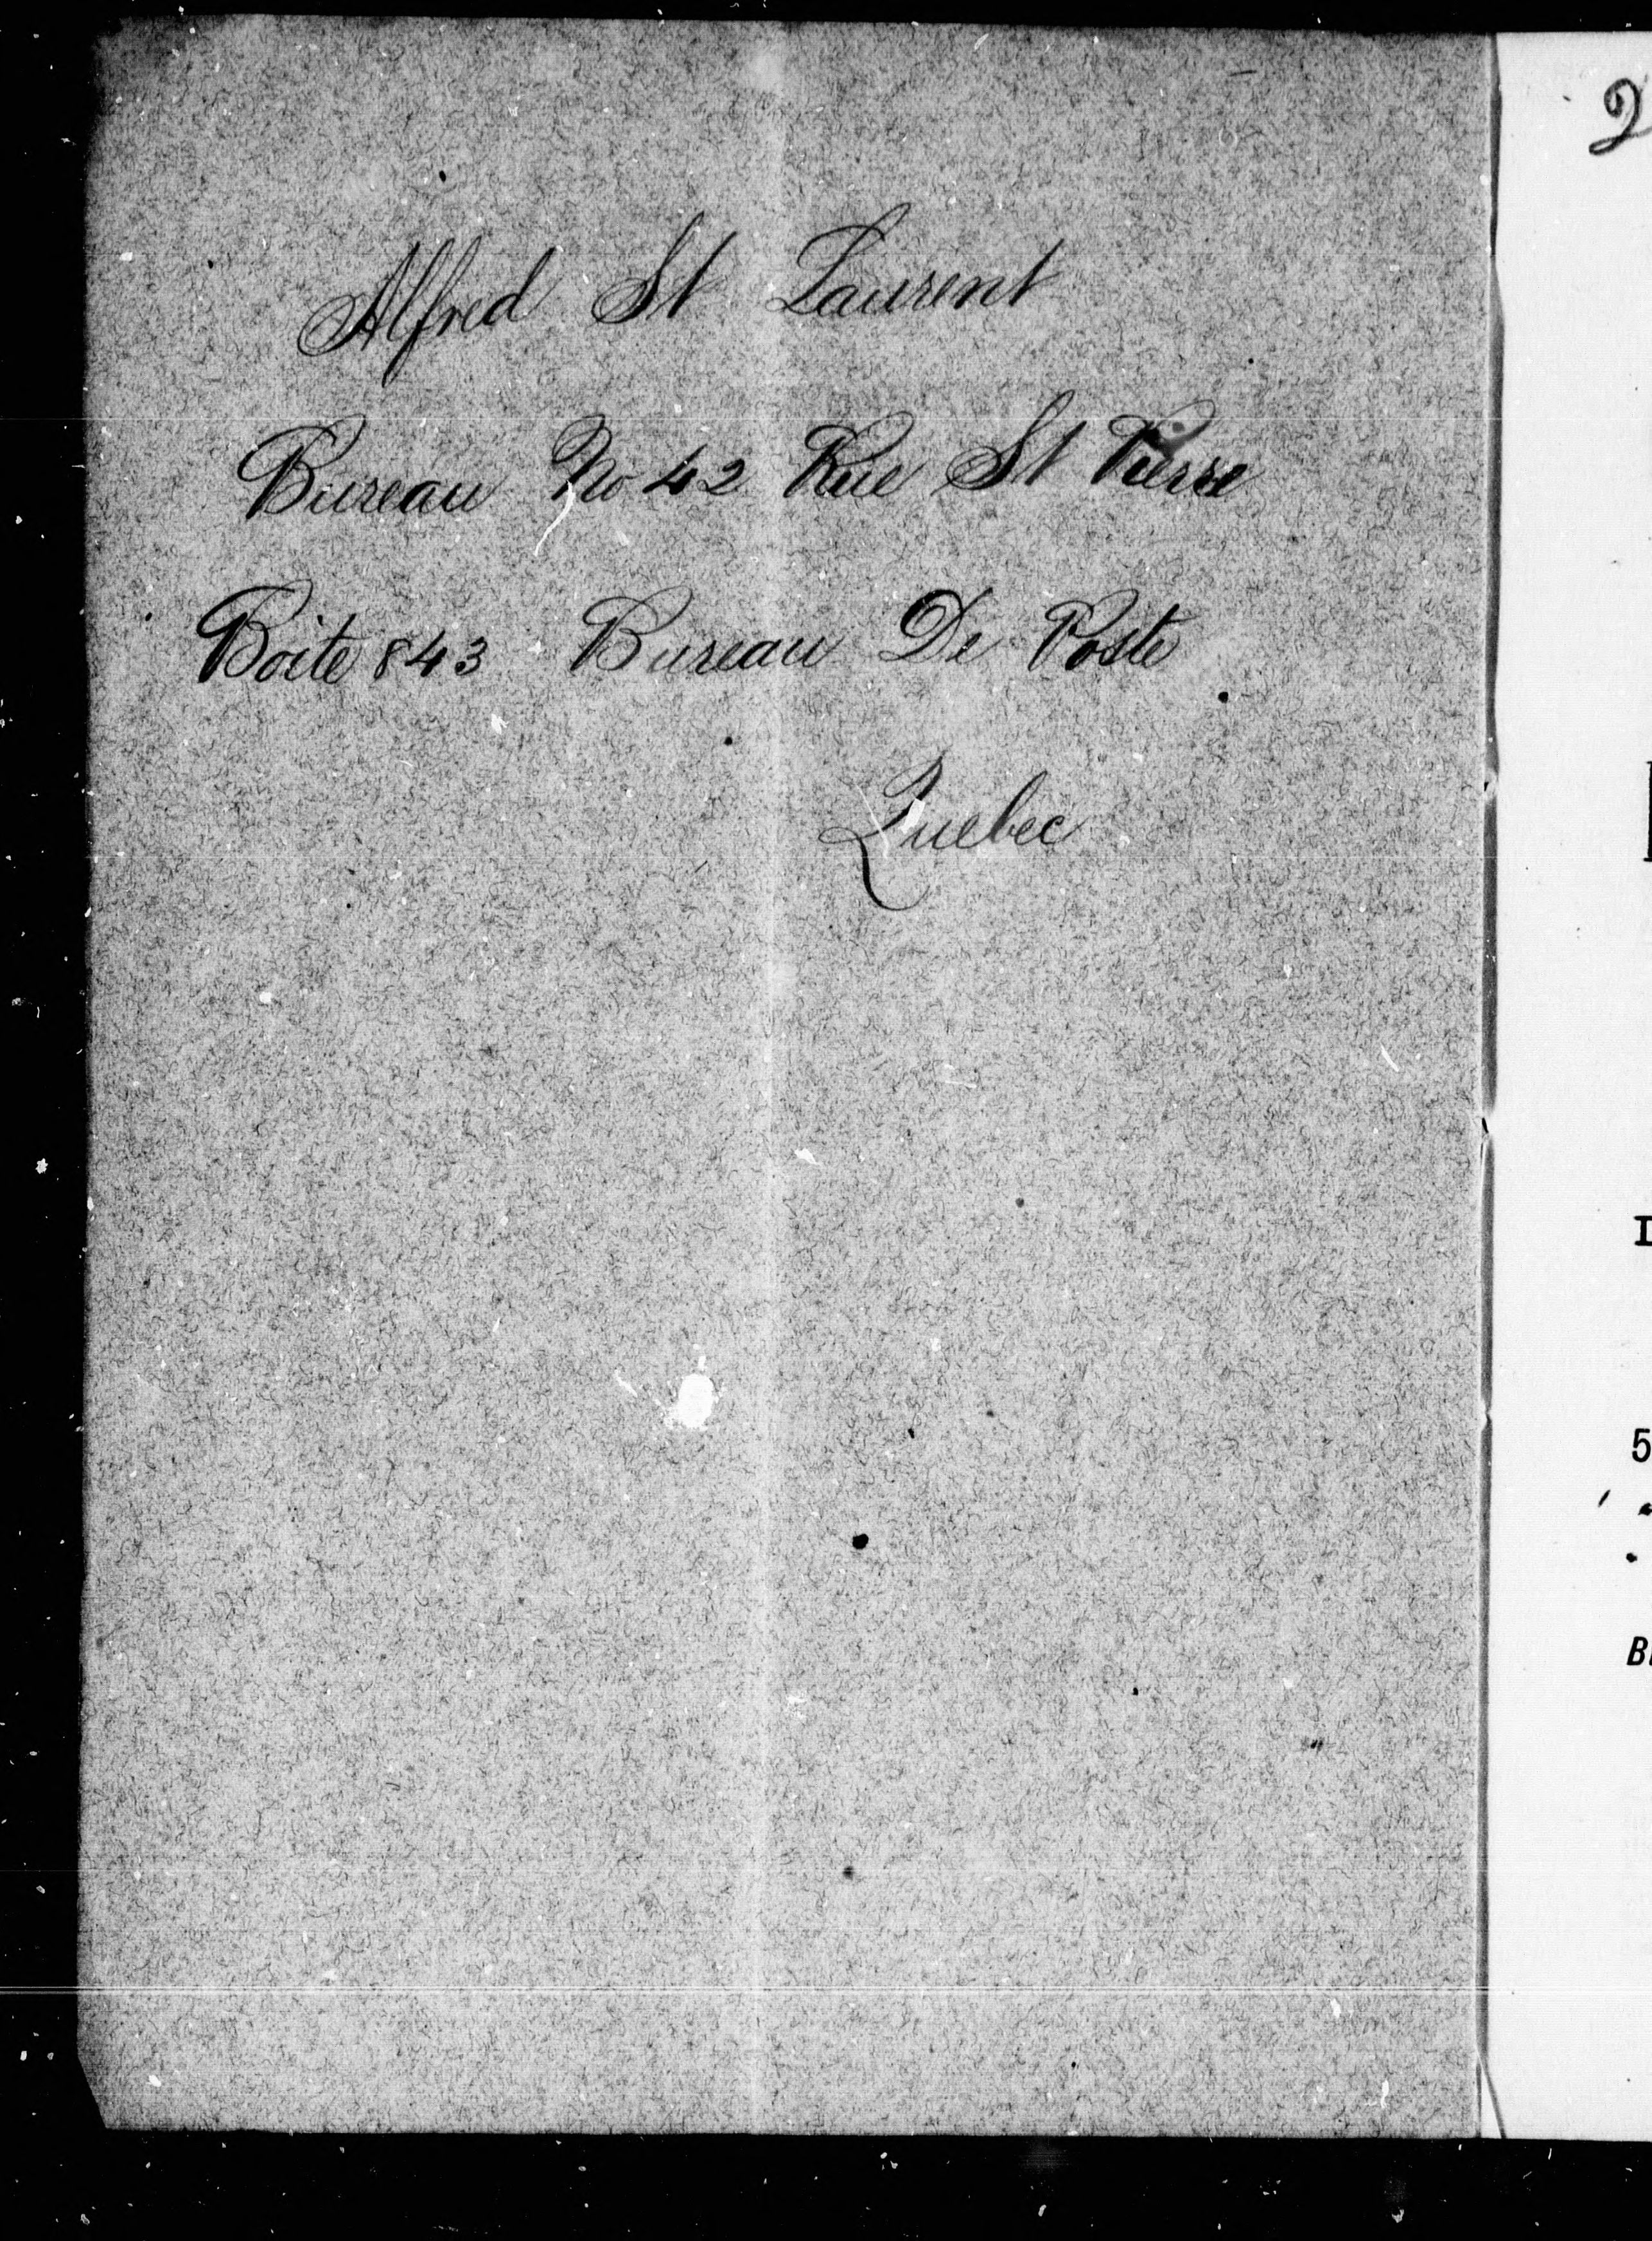 Alfred St Laurent
Bureau No 42 Rue St Pierre
Boite 843 Bureau De Poste
Quebec
2
5